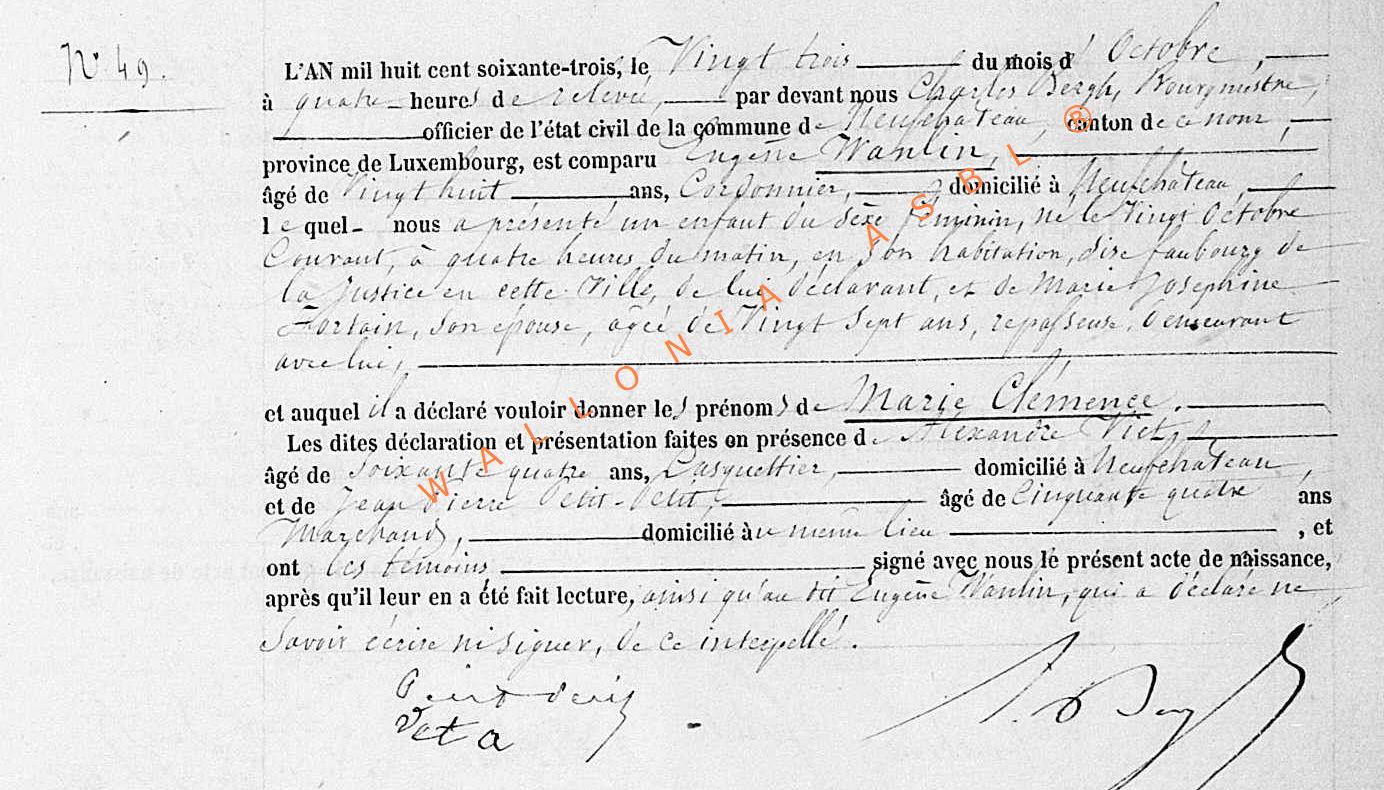 N° 49.
L'AN mil huit cent soixante-trois, le Vingt trois du mois d' Octobre,
à quatre heures de relevée, par devant nous Charles Bergh, Bourgmestre,
officier de l'état civil de la commune de Neufchâteau, canton de ce nom,
province de Luxembourg, est comparu Eugène Wanlin,
âgé de Vingt huit ans, Cordonnier, domicilié à Neufchâteau,
le quel nous a présenté un enfant du sexe féminin, né le Vingt Octobre
Courant, à quatre heures du matin, en son habitation, dise faubourg de
la Justice en cette Ville, de lui déclarant, et de Marie Josephine
son épouse, âgée de Vingt sept ans, repasseuse, demeurant
avec lui,
et auquel il a déclaré vouloir donner les prénoms de Marie Clémence.
Les dites déclaration et présentation faites en présence de Alexandre
âgé de soixante quatre ans, Casquettier, domicilié à Neufchâteau,
et de Jean Pierre Petit-Petit, âgé de Cinquante quatre ans
Marchand, domicilié au même lieu, et
ont les témoins signé avec nous le présent acte de naissance,
après qu'il leur en a été fait lecture, ainsi qu'au dit Eugène Wanlin, qui a déclaré ne
savoir écrire ni signer, de ce interpellé.
WALLONIA ASBL ®